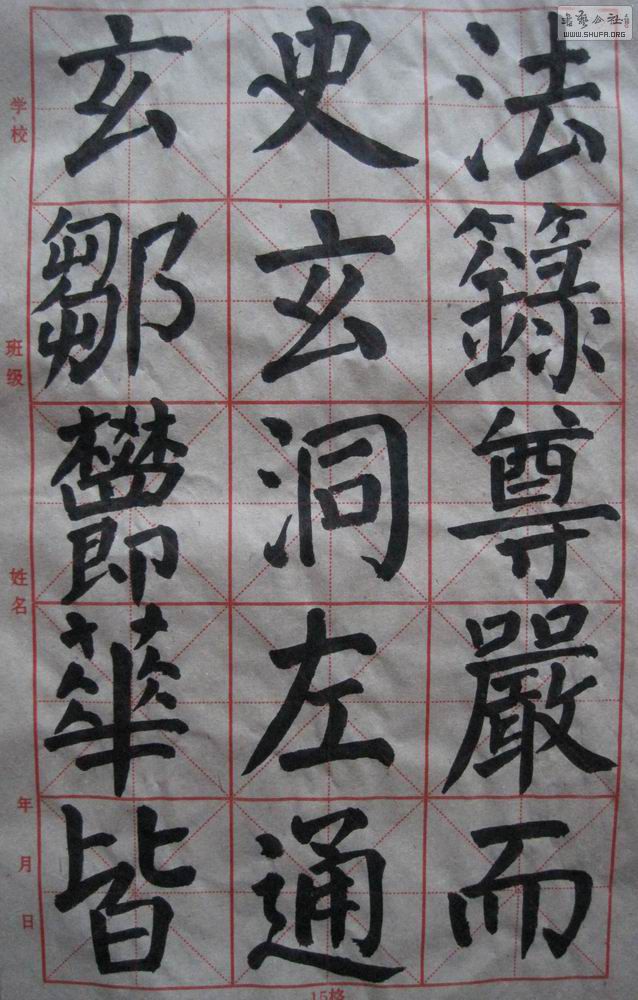 书艺公社
WWW.SHUFA.ORG
法籙尊嚴而
史玄洞左通
玄鄒鬱華皆
学校
班级
姓名
年月日
15格